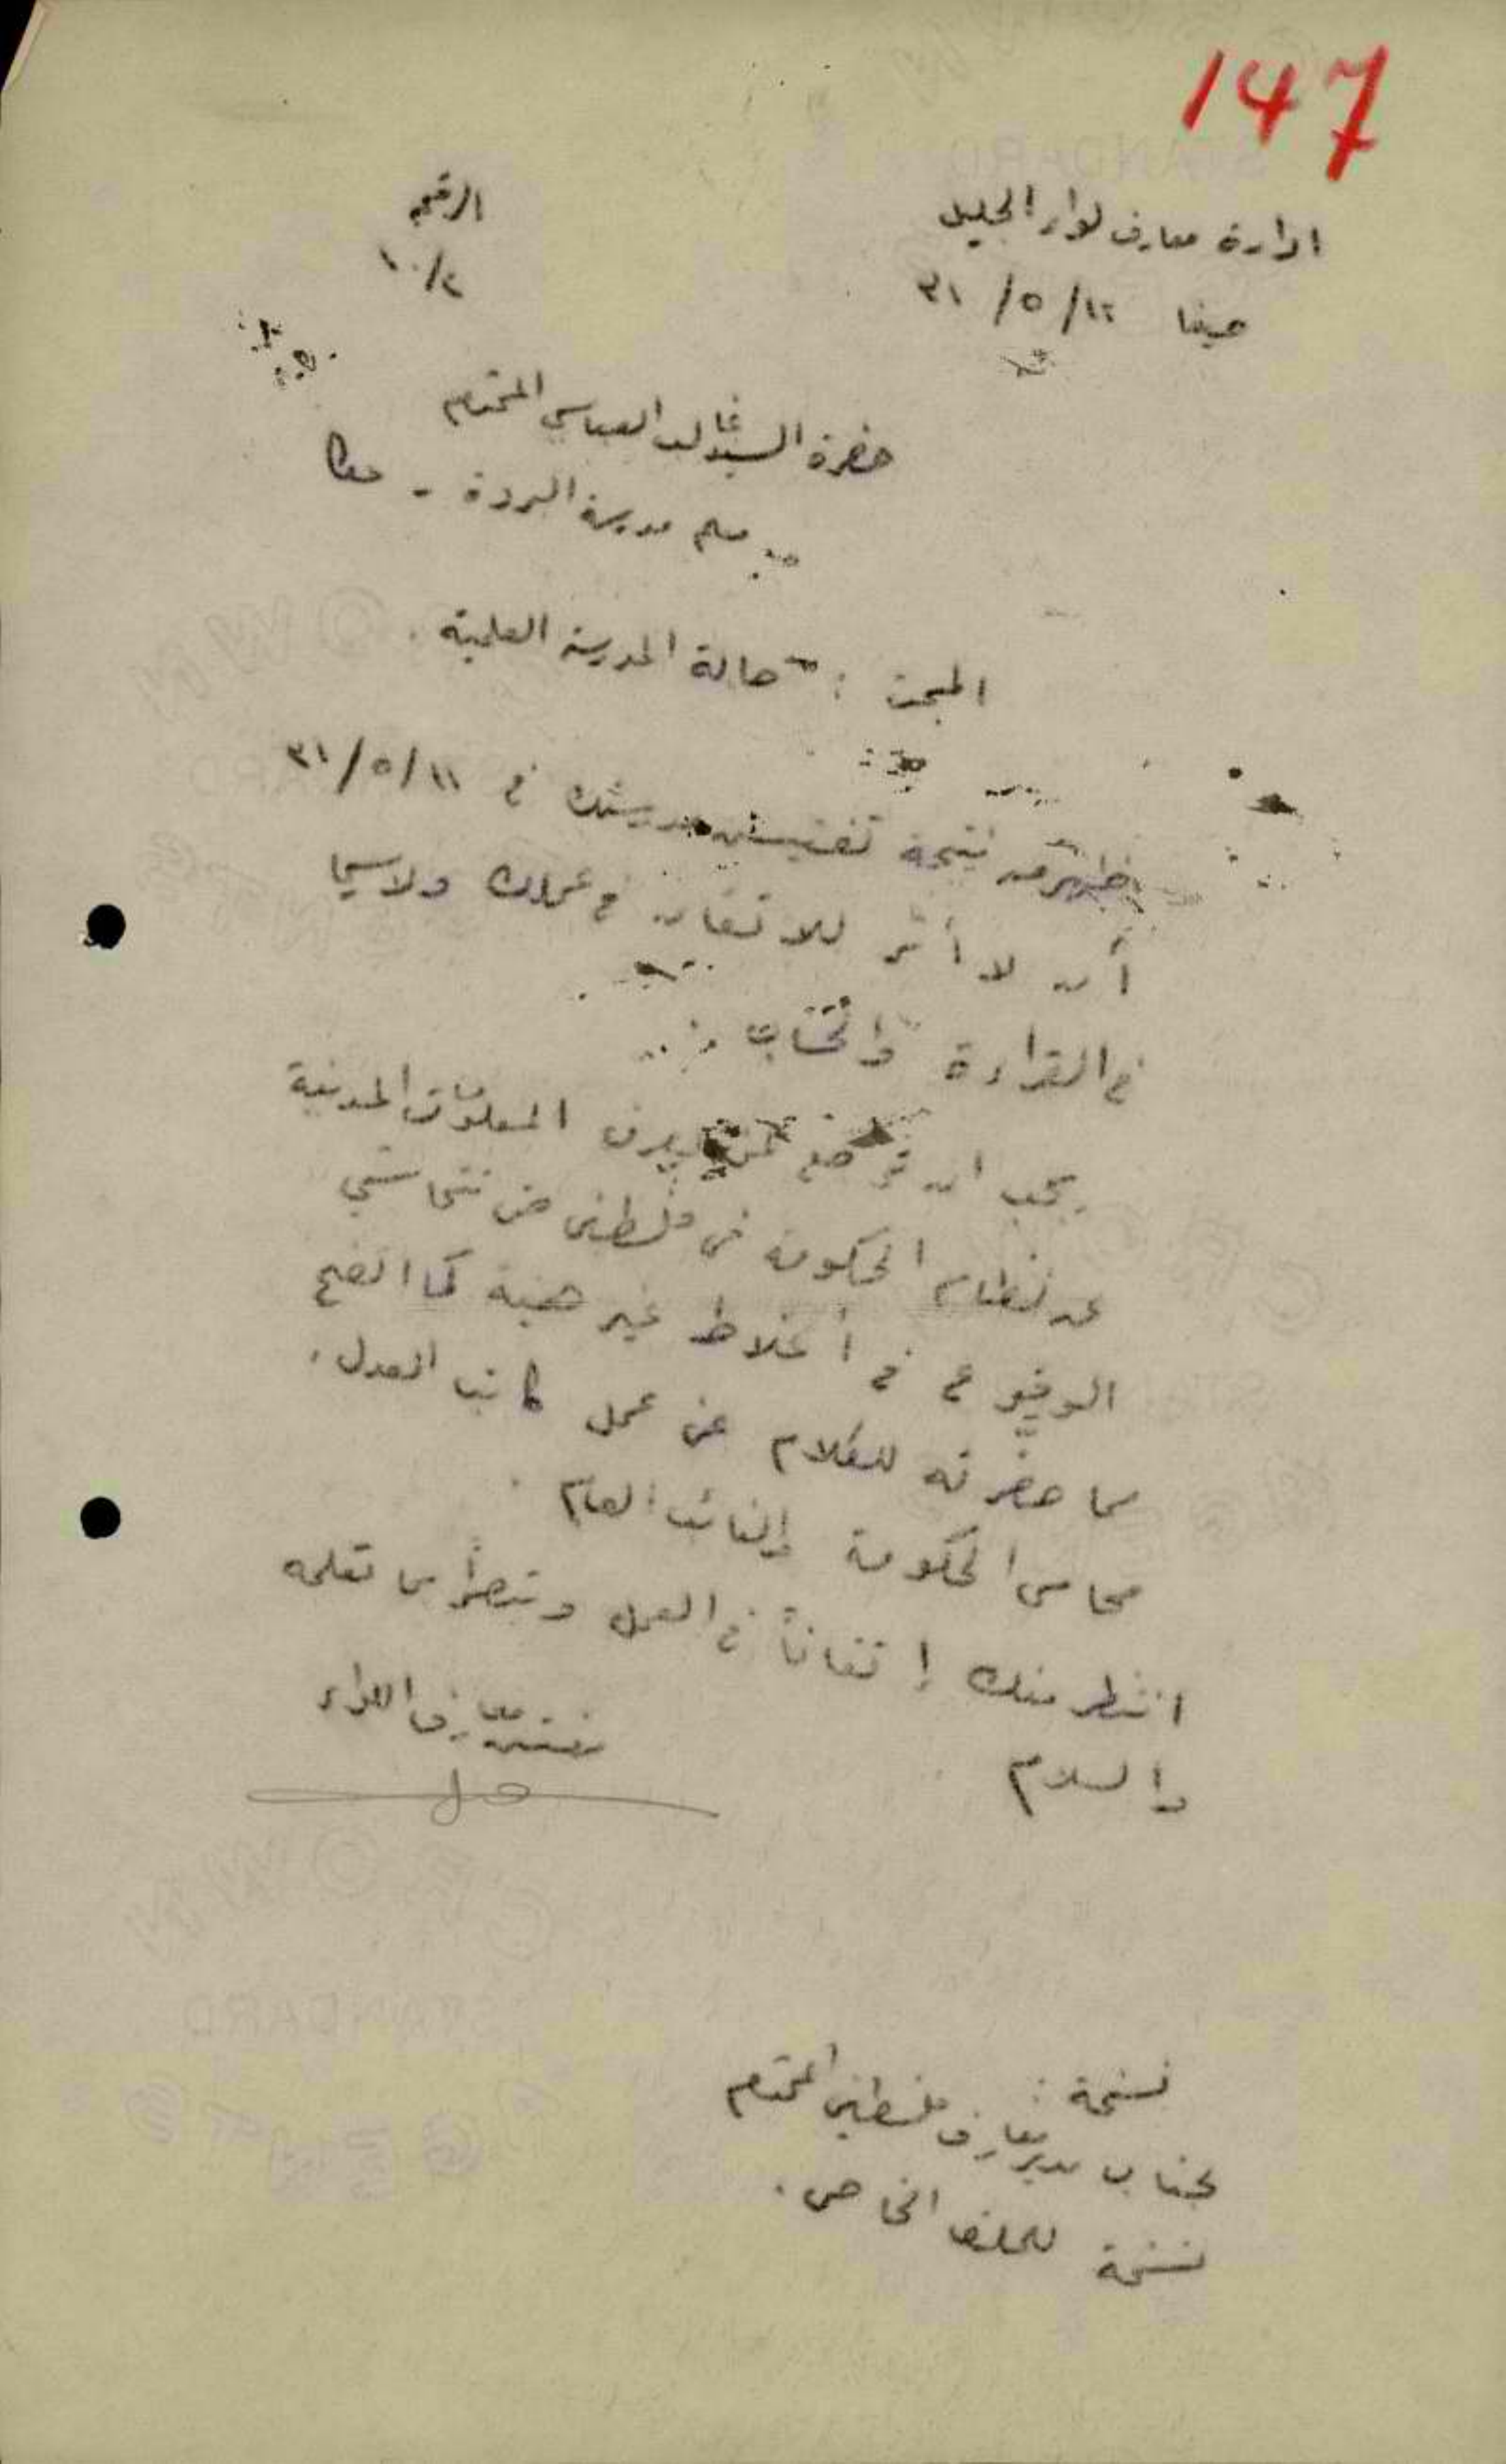 147
ادارة معارف لواء الجليل
الرقم
حيفا ١٢/ ٥/ ٣١
١٠/٢
حضرة السيد غالب العباسي المحترم
معلم مدرسة البروة - عكا
المبحث : حالة المدرسة العلمية .
ظهر من نتيجة تفتيش مدرستك في ١١/ ٥/ ٣١
أن لا أثر للاتقان في عملك ولا سيما
في القراءة والحساب .
يجب ان المعلومات المدنية
عن نظام الحكومة في فلسطين حتى تتحاشى
الوقوع في أغلاط غير هينة كما اتضح
مما حضرته للكلام عن عمل كاتب العدل .
محامي الحكومة والنائب العام .
انتظر منك إتقاناً في العمل وتبصراً بما تعلمه
والسلام
مفتش معارف اللواء
نسخة :
لجناب مدير معارف فلسطين المحترم
نسخة للملف الخاص .